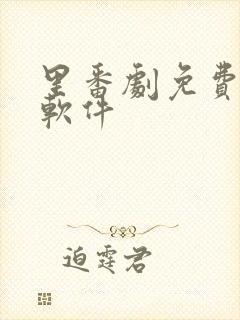 里番劇免費
軟件
迫霆君